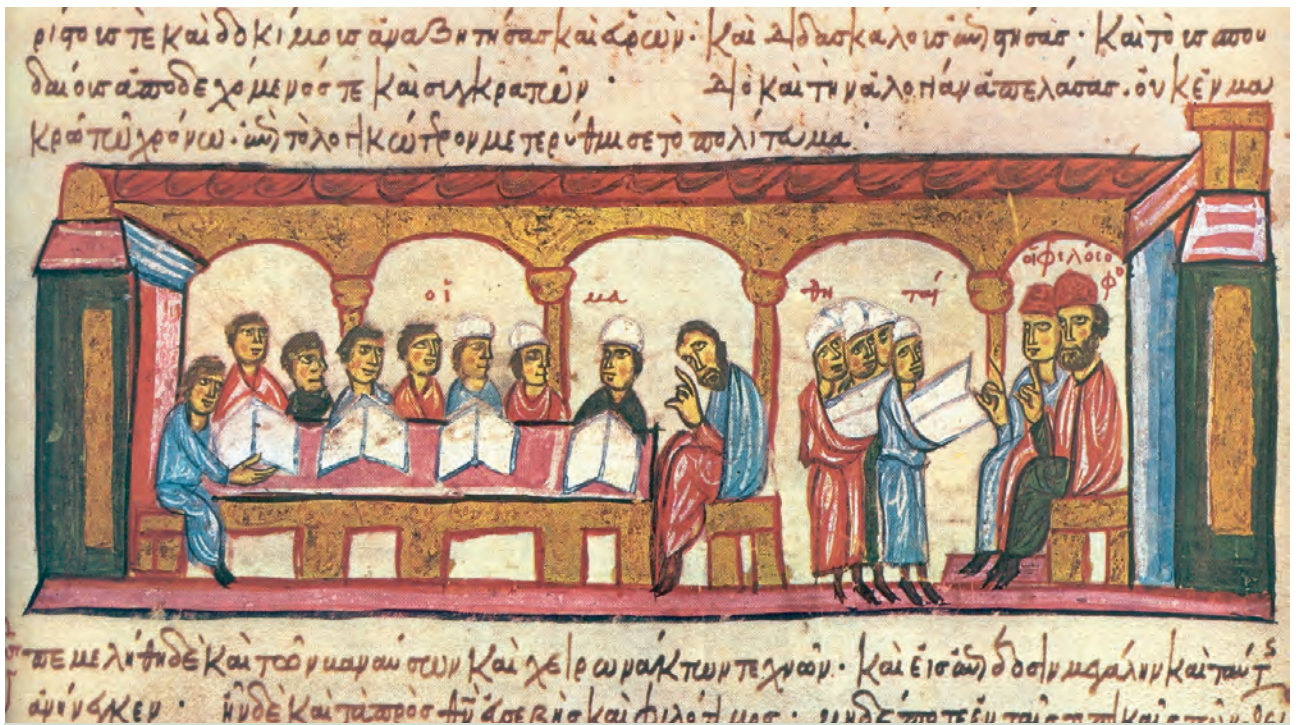 ρίτοις τε καὶ δοκίμοις ἀναζητήσας καὶ εὑρών · καὶ διδασκάλοις ἐπιστήσας · καὶ τοὺς σπου
δαίους ἀποδεχόμενός τε καὶ συγκροτῶν · διὸ καὶ τὴν ἀλογίαν ἀπελάσας · οὐκ ἐν μα
κρῶ τῶ χρόνω · ἐπὶ τὸ λογικώτερον μετερύθμισε τὸ πολίτευμα ·
οἱ μαθηταί
οἱ φιλόσοφοι
ἐπεμελήθη δὲ καὶ τῶν βαναύσων καὶ χειρωνάκτων τεχνῶν · καὶ εἰς ἐπίδοσιν μεγάλην καὶ ταύτας
ἀνήνεγκεν · ἦν δὲ καὶ τὰ πρὸς θεὸν εὐσεβὴς καὶ φιλότιμος ·